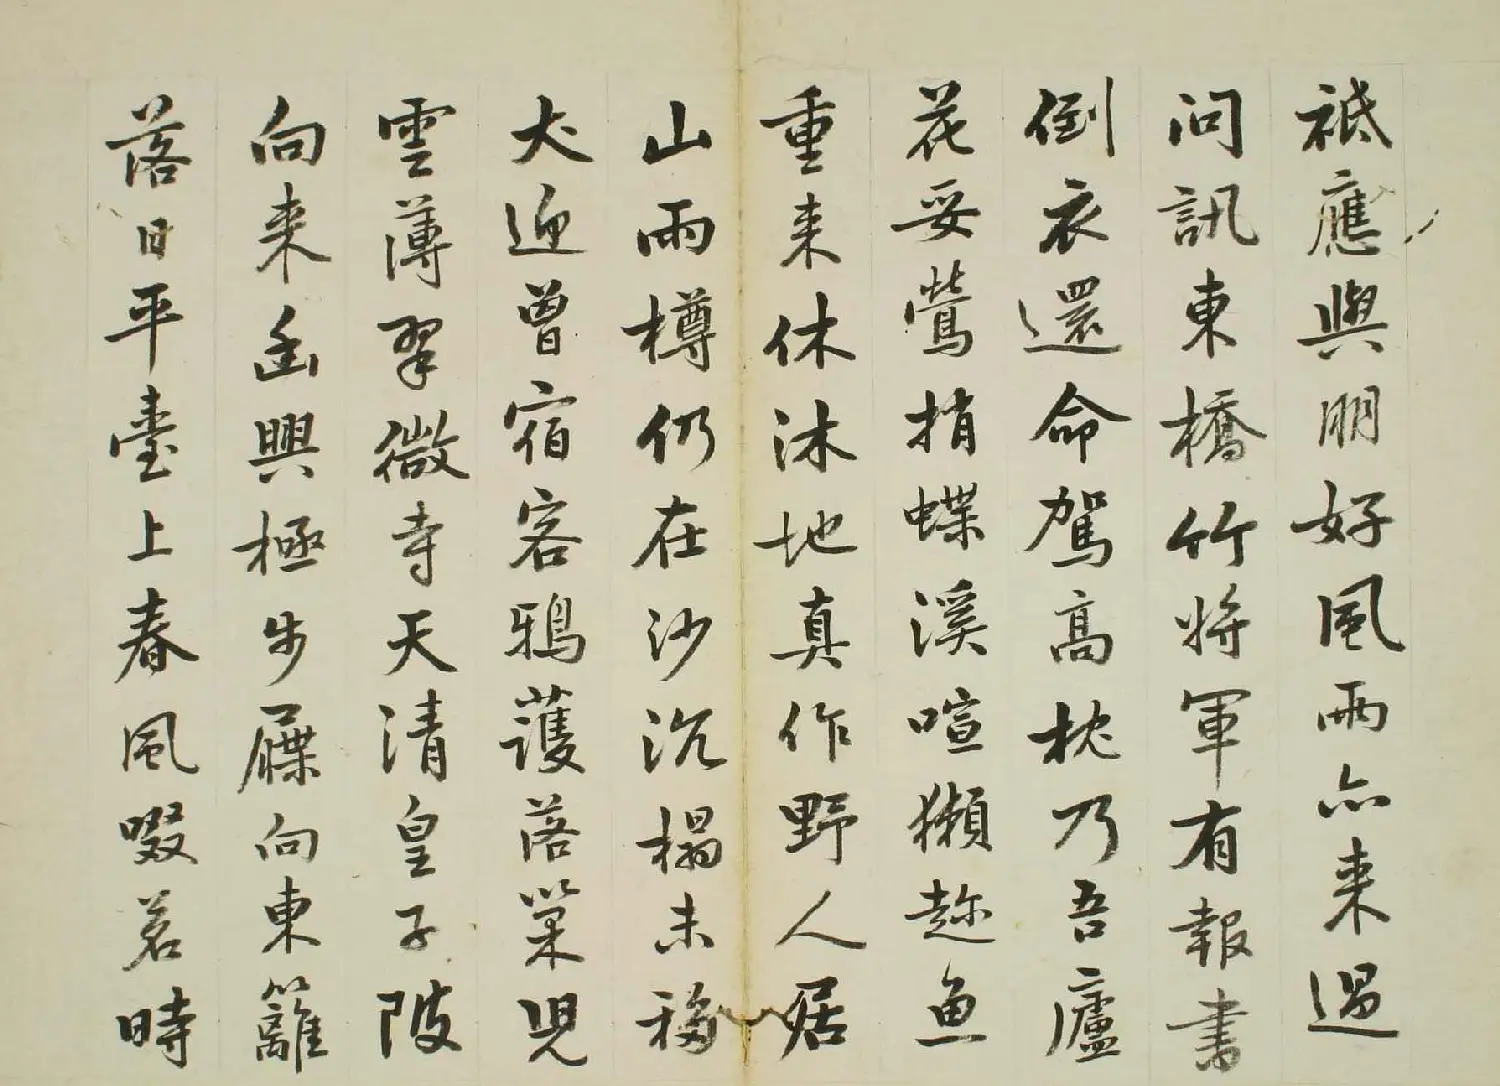 祗應與朋好風雨亦来過
问訊東橋竹將軍有報書
倒衣還命駕高枕乃吾廬
花妥鶯捎蝶溪喧獺趂魚
重来休沐地真作野人居
山雨樽仍在沙沉榻未移
犬迎曾宿客鴉護落巢児
雲薄翠微寺天清皇子陂
向来幽興極步屧向東籬
落日平臺上春風啜茗時